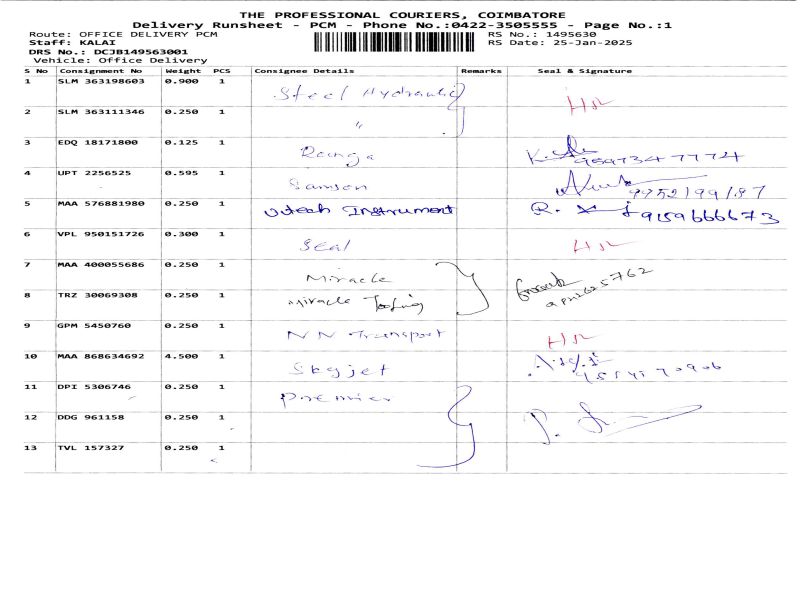 THE PROFESSIONAL COURIERS, COIMBATORE
Delivery Runsheet - PCM - Phone No.:0422-3505555 - Page No.:1
Route: OFFICE DELIVERY PCM RS No.: 1495630
Staff: KALAI RS Date: 25-Jan-2025
DRS No.: DCJB149563001
Vehicle: Office Delivery
S No Consignment No Weight PCS Consignee Details Remarks Seal & Signature
1 SLM 363198603 0.900 1 Steel Hydraulic
2 SLM 363111346 0.250 1 "
3 EDQ 18171800 0.125 1 Ranga
4 UPT 2256525 0.595 1 Samson 9952199187
5 MAA 576881980 0.250 1 Vtech Instrument 9159666673
6 VPL 950151726 0.300 1 Seal
7 MAA 400055686 0.250 1 Miracle
8 TRZ 30069308 0.250 1 Miracle Tooling
9 GPM 5450760 0.250 1 NN Transport
10 MAA 868634692 4.500 1 Skyjet
11 DPI 5306746 0.250 1 Premier
12 DDG 961158 0.250 1
13 TVL 157327 0.250 1